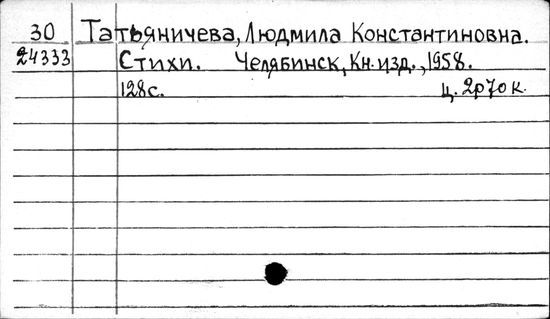 30 Татьяничева, Людмила Константиновна.
24333 Стихи. Челябинск, Кн. изд., 1958.
128с. ц. 2р70к.